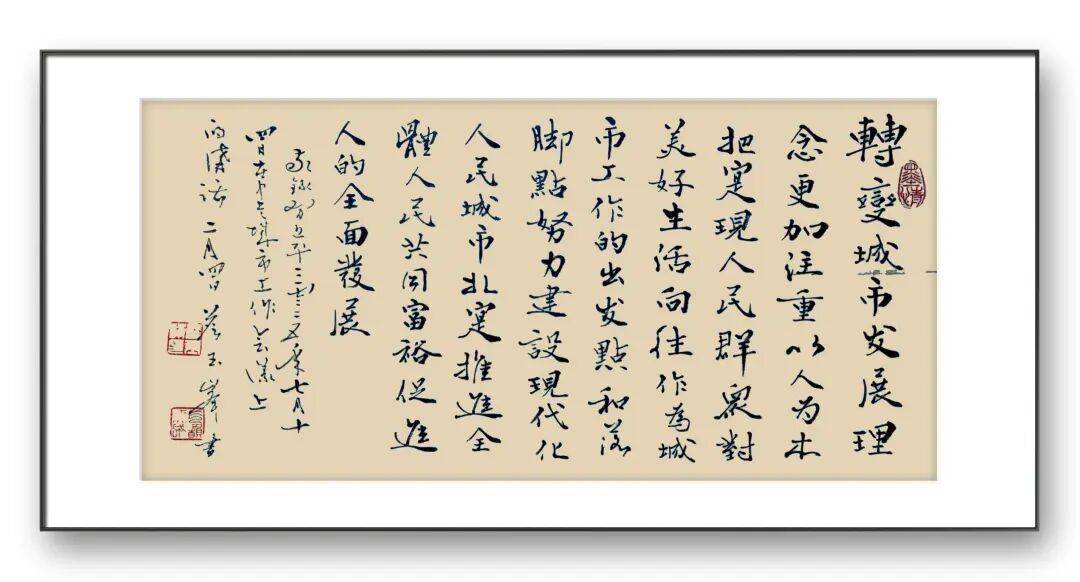 轉變城市发展理
念更加注重以人为本
把寔現人民群眾對
美好生活向往作為城
市工作的出发點和落
脚點努力建設現代化
人民城市扎寔推進全
體人民共同富裕促進
人的全面發展
敬録習近平二零二五年七月十
四日在中央城市工作会議上
的講话 二月四日 玉峰書